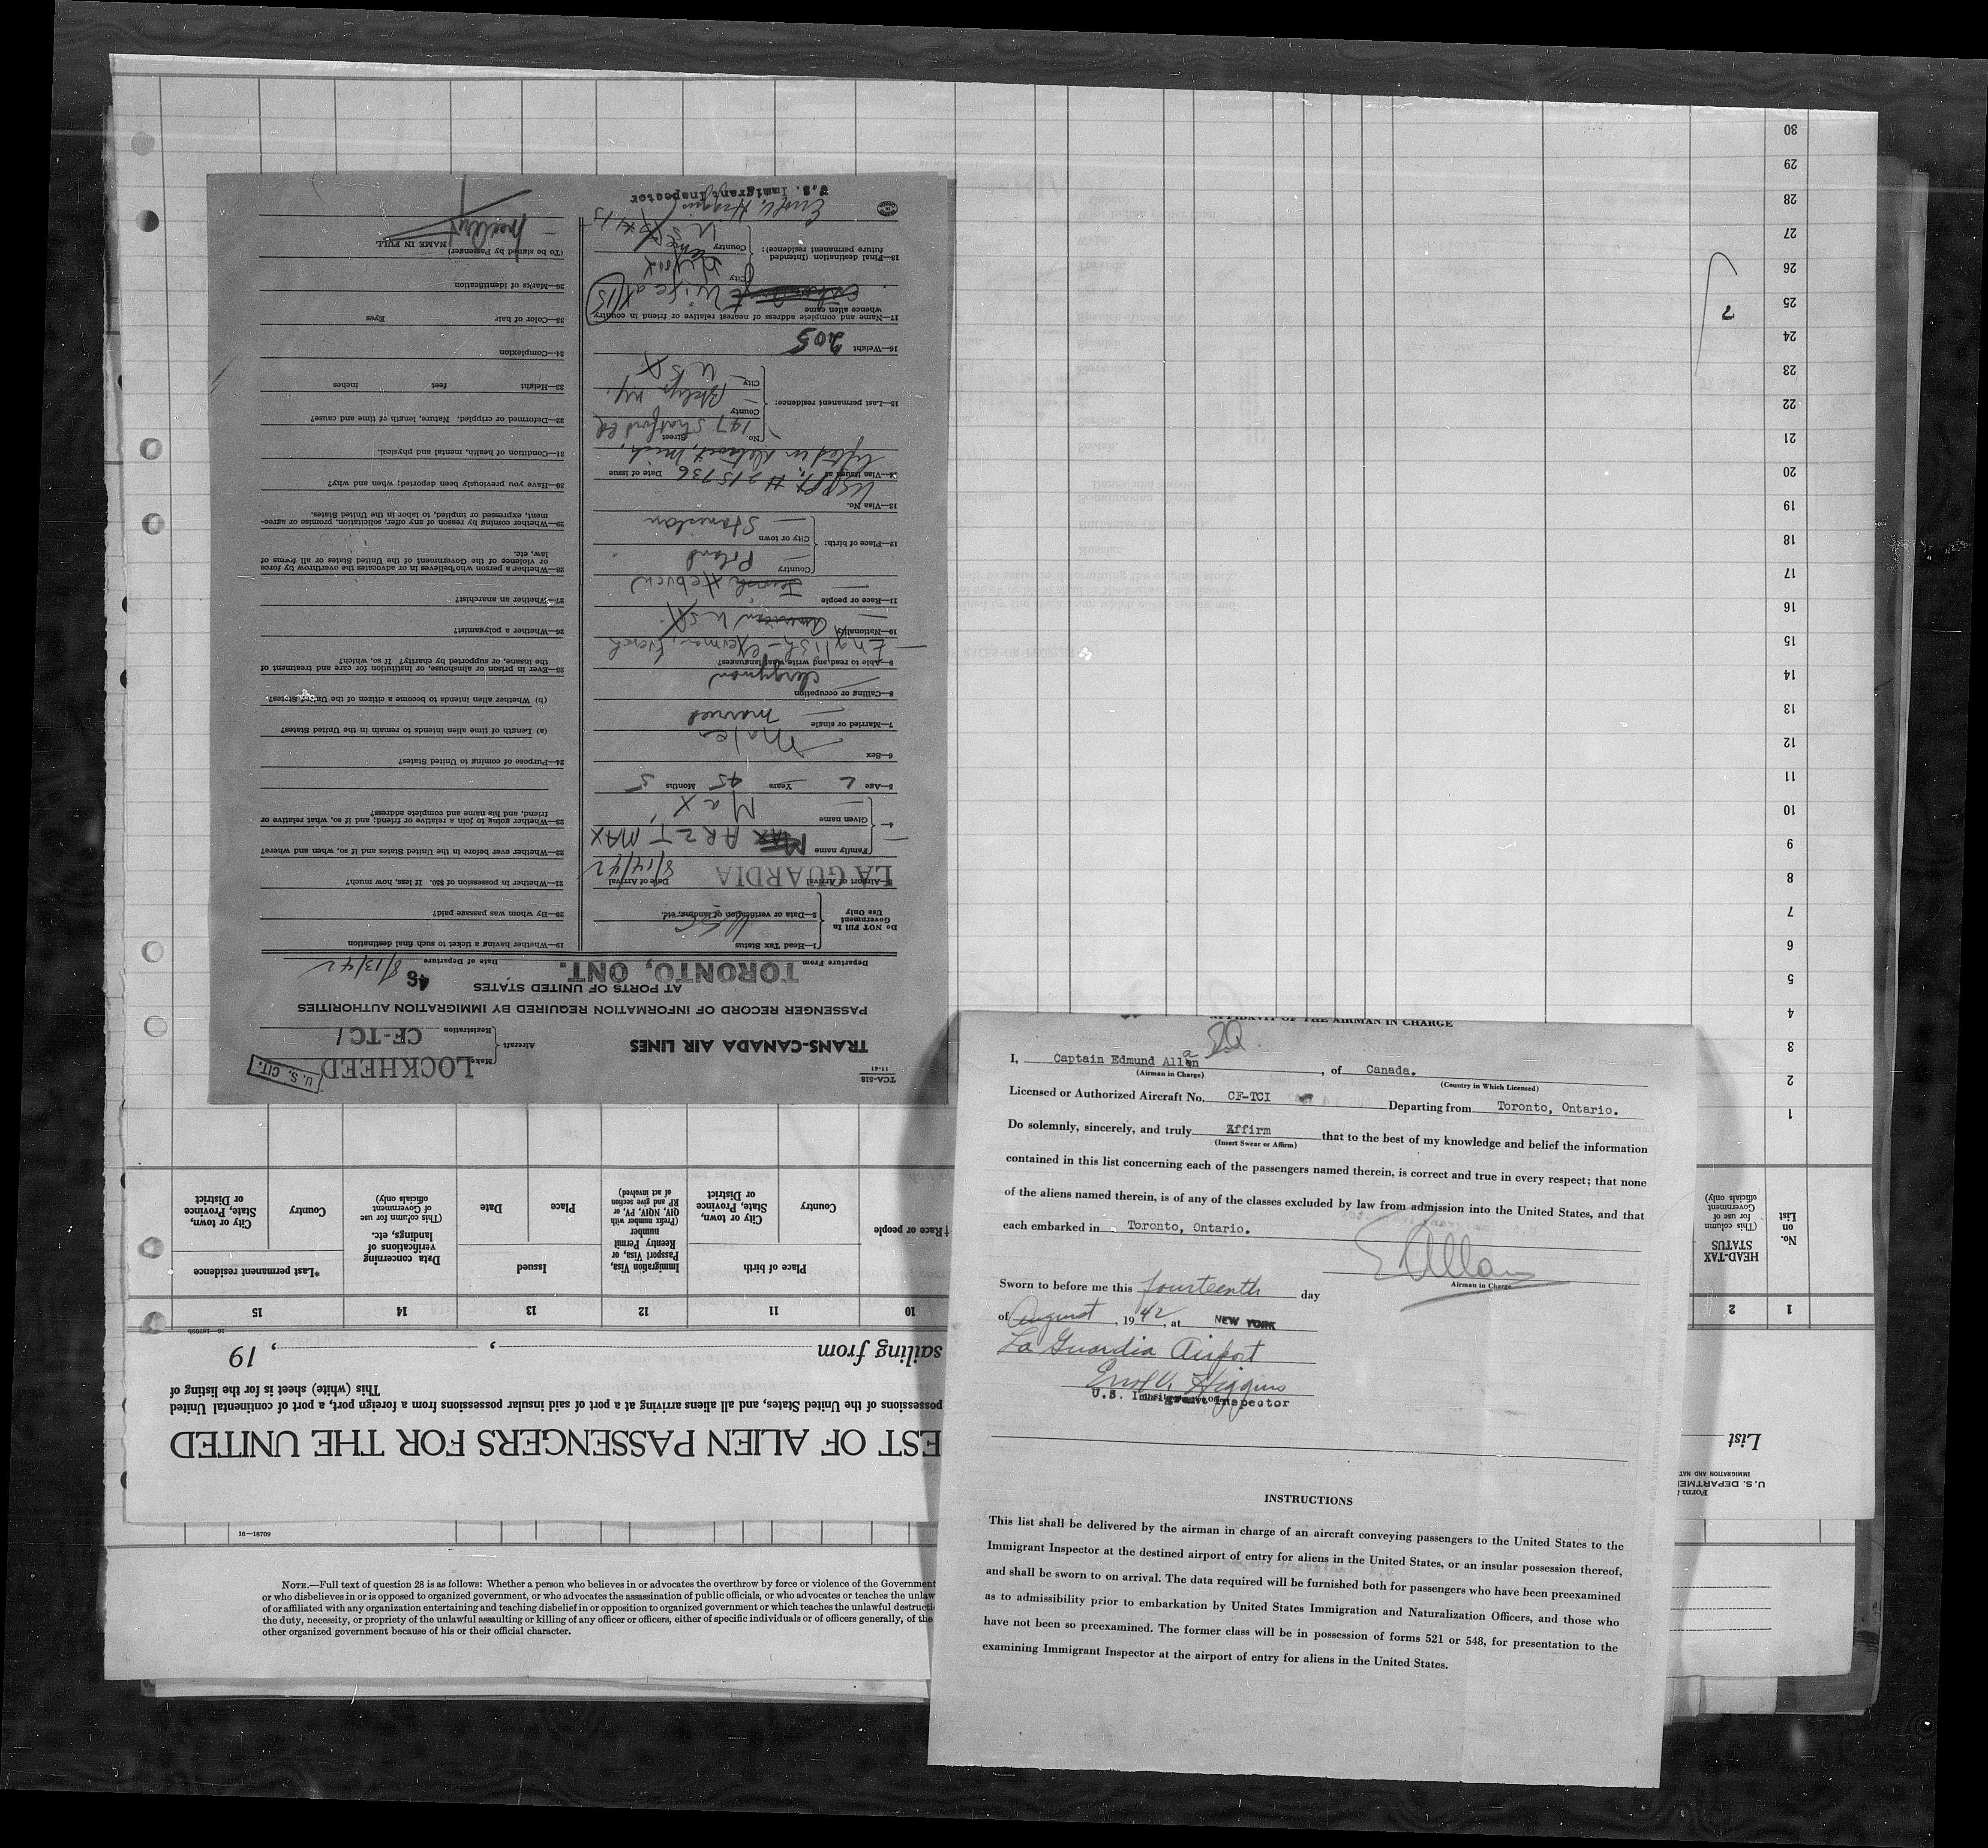 TCA-518
11-41
TRANS-CANADA AIR LINES
Aircraft { Make LOCKHEED
Registration CF-TCI
U. S. CIT.
PASSENGER RECORD OF INFORMATION REQUIRED BY IMMIGRATION AUTHORITIES
AT PORTS OF UNITED STATES
46
Departure From TORONTO, ONT. Date of Departure 8/13/42
Do NOT Fill In
Government
Use Only
1—Head Tax Status
2—Data or verification of landing, etc. USC
3—Airport of Arrival LA GUARDIA Date of Arrival 8/14/42
4— { Family name ARZT, MAX
Given name Max
5—Age Years 45 Months 5
6—Sex Male
7—Married or single married
8—Calling or occupation clergyman
9—Able to read and write what languages? English - German, French
10—Nationality American USA
11—Race or people Jewish Hebrew
12—Place of birth: { Country Poland
City or town Stanislau
13—Visa No.
14—Visa issued at Date of issue
USPPt # 215736
lifted in Detroit, Mich.
15—Last permanent residence: { No. Street 147 Stratford Rd
County Bklyn NY.
City USA
16—Weight 205
17—Name and complete address of nearest relative or friend in country
whence alien came
Wife at #15
18—Final destination (Intended
future permanent residence): { City
Country
Same as #15
Errol V. Higgins
U.S. Immigrant Inspector
19—Whether having a ticket to such final destination
20—By whom was passage paid?
21—Whether in possession of $50. If less, how much?
22—Whether ever before in the United States and if so, when and where?
23—Whether going to join a relative or friend; and if so, what relative or
friend, and his name and complete address?
24—Purpose of coming to United States?
(a) Length of time alien intends to remain in the United States?
(b) Whether alien intends to become a citizen of the United States?
25—Ever in prison or almshouse, or institution for care and treatment of
the insane, or supported by charity? If so, which?
26—Whether a polygamist?
27—Whether an anarchist?
28—Whether a person who believes in or advocates the overthrow by force
or violence of the Government of the United States or all forms of
law, etc.
29—Whether coming by reason of any offer, solicitation, promise or agree-
ment, expressed or implied, to labor in the United States.
30—Have you previously been deported; when and why?
31—Condition of health, mental and physical.
32—Deformed or crippled. Nature, length of time and cause?
33—Height feet inches
34—Complexion
35—Color of hair Eyes
36—Marks of identification
(To be signed by Passenger)
NAME IN FULL
AFFIDAVIT OF THE AIRMAN IN CHARGE
I, Captain Edmund Allan, of Canada.
(Airman in Charge) (Country in Which Licensed)
Licensed or Authorized Aircraft No. CF-TCI Departing from Toronto, Ontario.
Do solemnly, sincerely, and truly Affirm that to the best of my knowledge and belief the information
(Insert Swear or Affirm)
contained in this list concerning each of the passengers named therein, is correct and true in every respect; that none
of the aliens named therein, is of any of the classes excluded by law from admission into the United States, and that
each embarked in Toronto, Ontario.
E Allan
Airman in Charge
Sworn to before me this fourteenth day
of August, 1942, at NEW YORK
La Guardia Airport
Errol V. Higgins
U.S. Immigrant Inspector
INSTRUCTIONS
This list shall be delivered by the airman in charge of an aircraft conveying passengers to the United States to the
Immigrant Inspector at the destined airport of entry for aliens in the United States, or an insular possession thereof,
and shall be sworn to on arrival. The data required will be furnished both for passengers who have been preexamined
as to admissibility prior to embarkation by United States Immigration and Naturalization Officers, and those who
have not been so preexamined. The former class will be in possession of forms 521 or 548, for presentation to the
examining Immigrant Inspector at the airport of entry for aliens in the United States.
Form
U. S. DEPARTME
IMMIGRATION AND NAT
List
EST OF ALIEN PASSENGERS FOR THE UNITED
possessions of the United States, and all aliens arriving at a port of said insular possessions from a foreign port, a port of continental United
This (white) sheet is for the listing of
sailing from , , 19
16—18709b
1 2 10 11 12 13 14 15
No.
on
List
HEAD-TAX
STATUS
(This column
for use of
Government
officials only)
†Race or people
Place of birth
Country
City or town,
State, Province
or District
Immigration Visa,
Passport Visa, or
Reentry Permit
number
(Prefix number with
QIV, NQIV, PV, or
RP and give section
of act involved)
Issued
Place
Date
Data concerning
verifications of
landings, etc.
(This column for use
of Government
officials only)
*Last permanent residence
Country
City or town,
State, Province
or District
1
2
3
4
5
6
7
8
9
10
11
12
13
14
15
16
17
18
19
20
21
22
23
24
25
26
27
28
29
30
16—18709
NOTE.—Full text of question 28 is as follows: Whether a person who believes in or advocates the overthrow by force or violence of the Government
or who disbelieves in or is opposed to organized government, or who advocates the assassination of public officials, or who advocates or teaches the unlaw
of or affiliated with any organization entertaining and teaching disbelief in or opposition to organized government or which teaches the unlawful destructi
the duty, necessity, or propriety of the unlawful assaulting or killing of any officer or officers, either of specific individuals or of officers generally, of the
other organized government because of his or their official character.